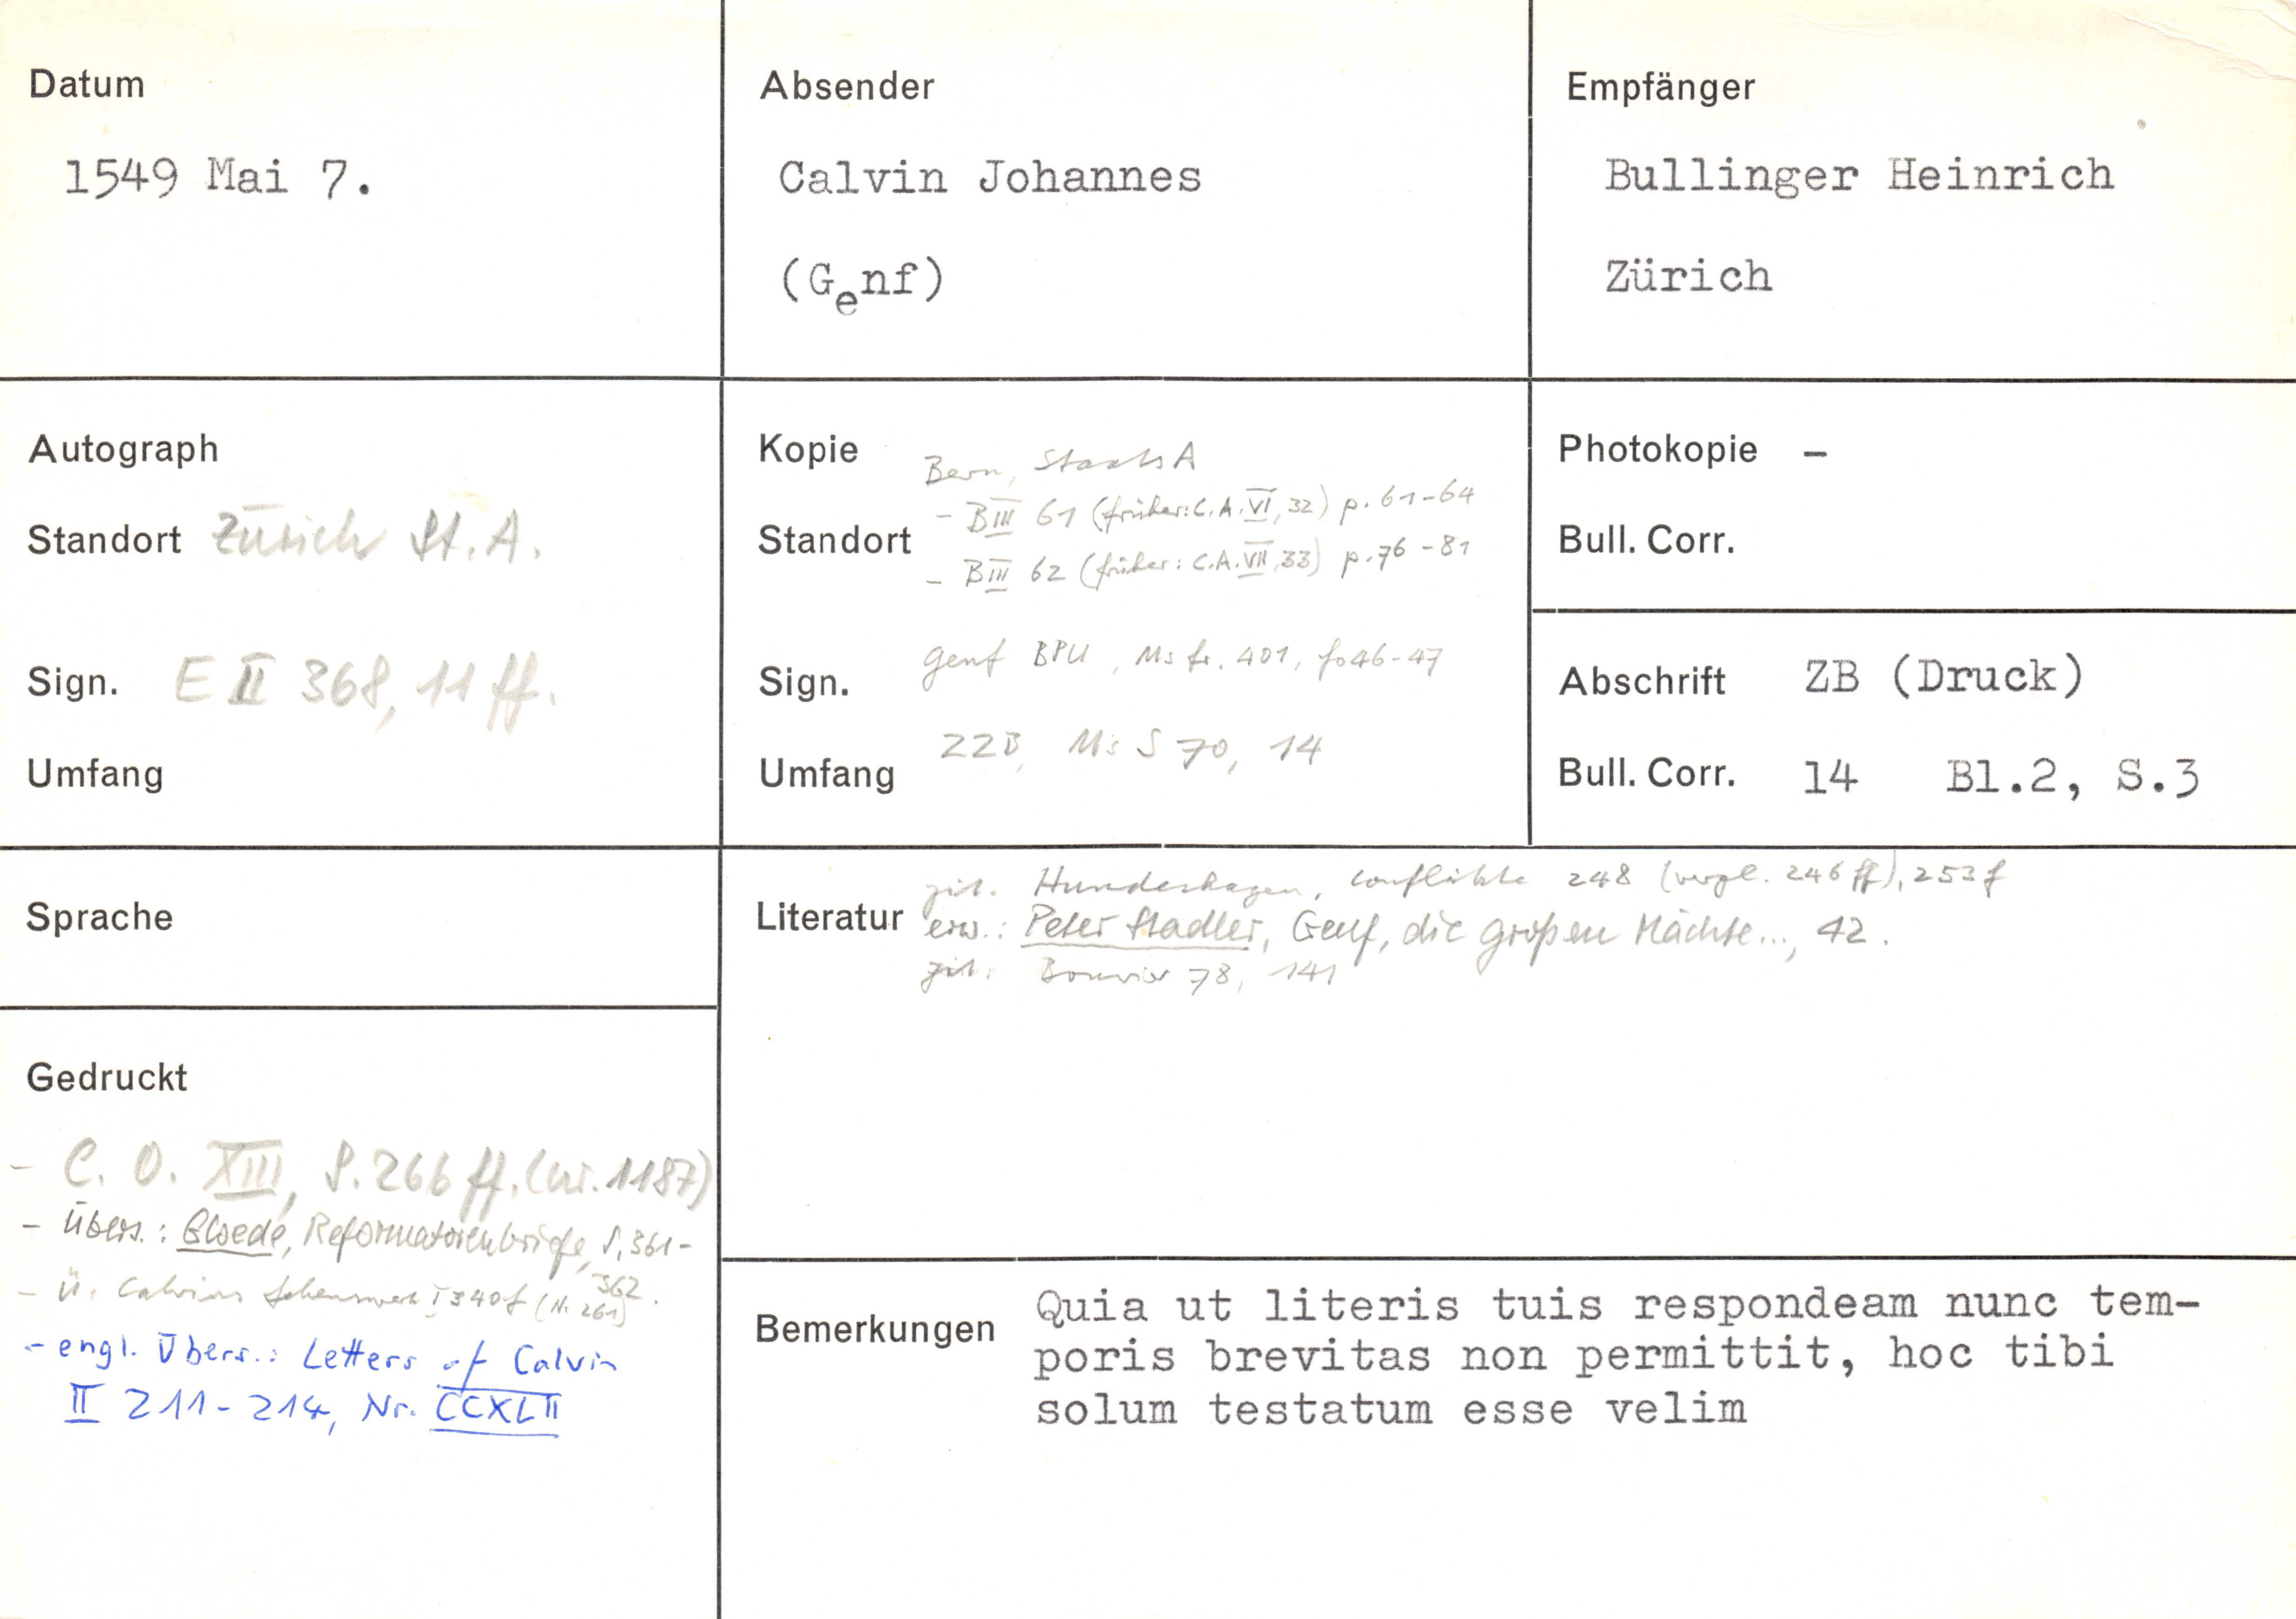 Datum
1549 Mai 7.
Absender
Calvin Johannes
(Genf)
Empfänger
Bullinger Heinrich
Zürich
Autograph
Standort Zürich St.A.
Sign. E II 368, 11 ff.
Umfang
Kopie Bern, StaatsA
- B III 61 (früher: C.A. VI, 32) p. 61-64
Standort
- B III 62 (früher: C.A. VII, 33) p. 76-81
Sign. Genf BPU, Ms fr. 401, fo 46-47
ZZB, Ms S 70, 14
Umfang
Photokopie -
Bull. Corr.
Abschrift ZB (Druck)
Bull. Corr. 14 Bl.2, S.3
Sprache
Literatur
zit. Hundeshagen, Conflikte 248 (vergl. 246 ff), 253 f
erw.: Peter Stadler, Genf, die großen Mächte..., 42.
zit. Bouvier 78, 141
Gedruckt
- C. O. XIII, S. 266 ff. (Nr. 1187)
- Übers.: Gloede, Reformatorenbriefe, S. 361-
362.
- Ü. Calvins Lebenswerk I 340 f (N. 261)
- engl. Übers.: Letters of Calvin
II 211-214, Nr. CCXLII
Bemerkungen
Quia ut literis tuis respondeam nunc tem-
poris brevitas non permittit, hoc tibi
solum testatum esse velim